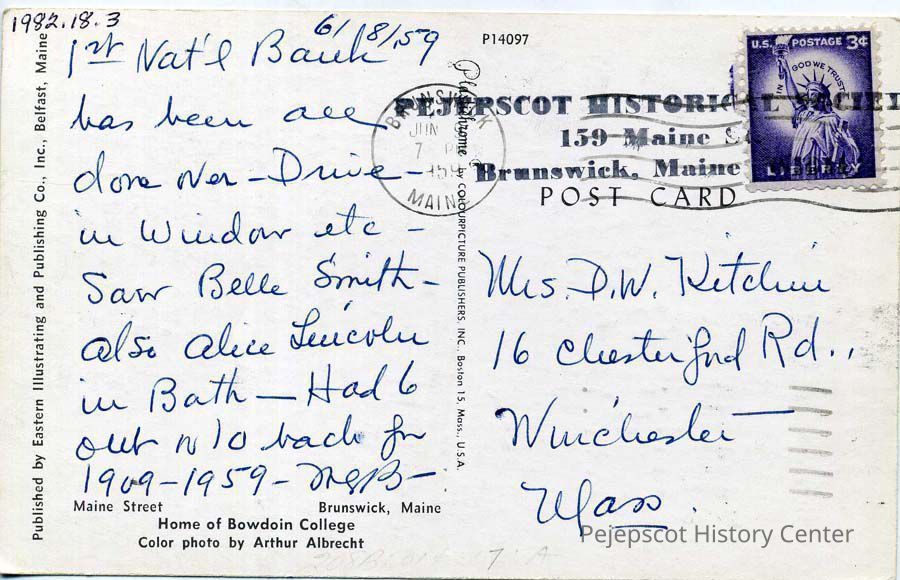 1982.18.3
6/18/59
1st Nat'l Bank
has been all
done over - Drive -
in Window etc -
Saw Belle Smith -
also Alice Lincoln
in Bath - Had 6
out o/10 back for
1909-1959 -
Maine Street Brunswick, Maine
Home of Bowdoin College
Color photo by Arthur Albrecht
Published by Eastern Illustrating and Publishing Co., Inc., Belfast, Maine
Plastichrome by COLOURPICTURE PUBLISHERS, INC. Boston 15, Mass., U.S.A.
P14097
U.S. POSTAGE 3¢
IN GOD WE TRUST
LIBERTY
BRUNSWICK
JUN
7 PM
1959
MAINE
PEJEPSCOT HISTORICAL SOCIETY
159 Maine
Brunswick, Maine
POST CARD
Mrs. D.W. Ketchin
16 Chesterford Rd.,
Winchester
Mass.
Pejepscot History Center